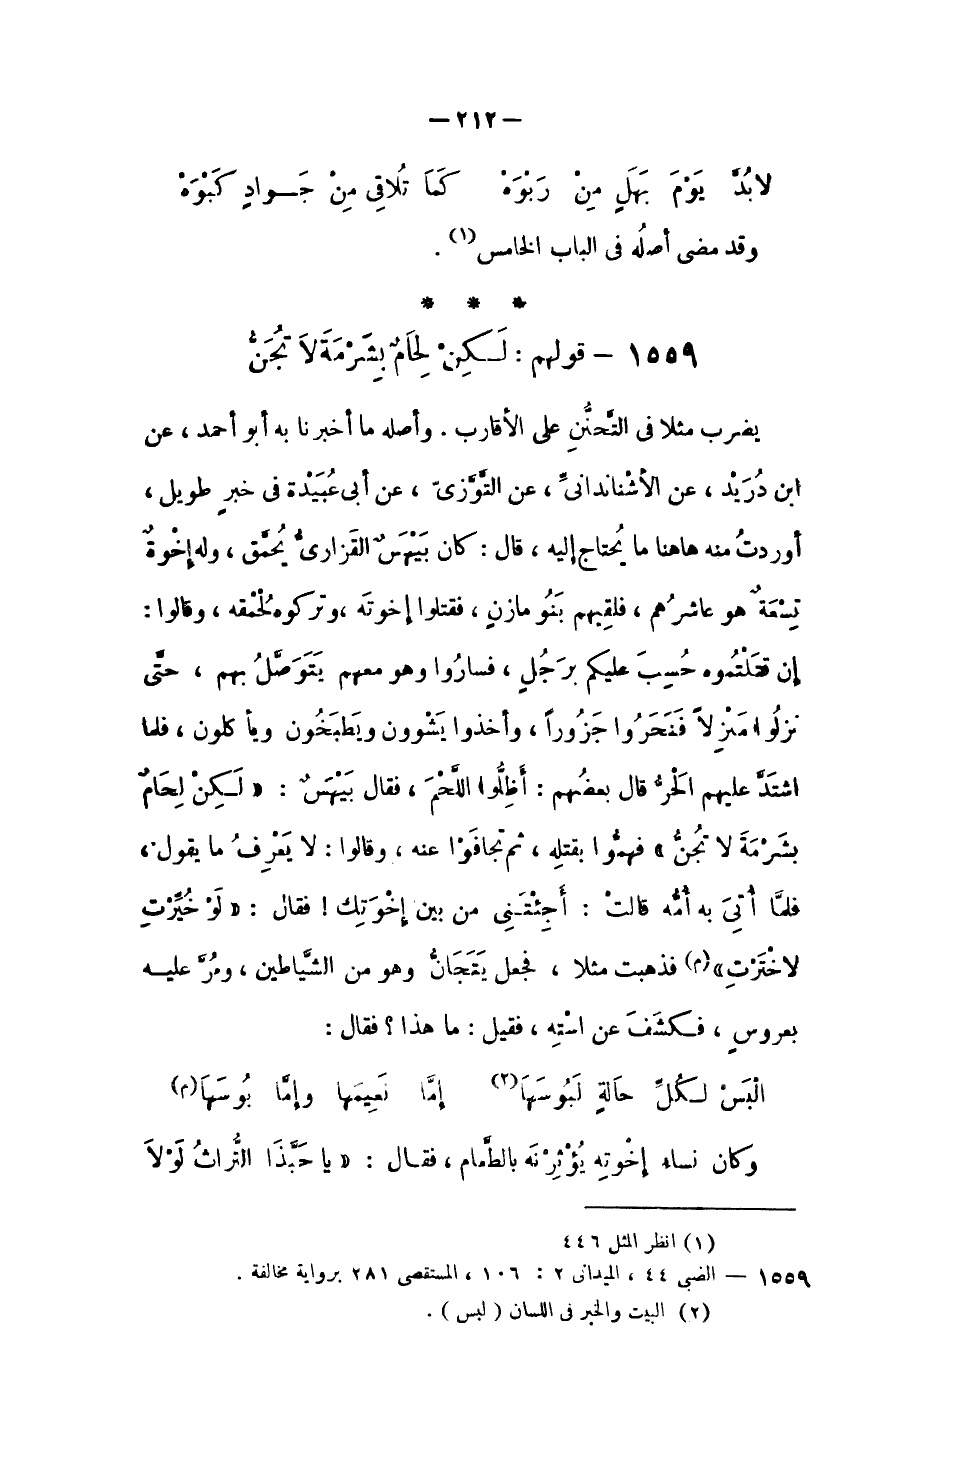 — ٢١٢ —
لابُدَّ يَوْمَ بَهَلٍ مِنْ رَبْوَهْ كَمَا تُلَاقِى مِنْ جَـوادٍ كَبْوَهْ
وقد مضى أصلُه فى الباب الخامس(١) .
* * *
١٥٥٩ – قولهم : لَـكِنْ لِحَامٌ بِشَرْمَةَ لاَ تُجَنُّ
يضرب مثلا فى التَّحنُّنِ على الأقارب . وأصله ما أخبرنا به أبو أحمد ، عن
ابن دُرَيْد ، عن الأشْناندانىِّ ، عن التَّوَّزىّ ، عن أبى عُبَيْدة فى خبرٍ طويل ،
أوردتُ منه هاهنا ما يُحتاج إليه ، قال : كان بَيْهَسٌ القَزارىُّ يُحمَّق ، وله إخْوةٌ
تِسْعَةٌ هو عاشرُهم ، فلقيهم بَنُو مازنٍ ، فقتلوا إخوتَه ، وتركوه لُحْمقه ، وقالوا :
إن قتَلْتُموه حُسِبَ عليكم برَجُلٍ ، فسارُوا وهو معهم يَتَوَصَّلُ بهم ، حتَّى
نزلُوا مَنْزِلاً فَنَحَرُوا جَزُوراً ، وأخذوا يَشْوون ويَطبَخُون ويأكلون ، فلما
اشتَدَّ عليهم الَحْرُّ قال بعضُهم : أَظِلُّوا اللَّحْمَ ، فقال بَيْهَسٌ : « لَـكِنْ لِحَامٌ
بشَرْمَةَ لا تُجنُّ » فهمُّوا بقتله ، ثم تجافَوْا عنه ، وقالوا : لا يَعْرِفُ ما يقول ،
فلمَّا أُتِىَ به أُمُّه قالتْ : أَجِئْتَـنِى من بين إخْوَتِك ! فقال : « لَوْ خُيِّرْتِ
لاخْتَرْتِ»(م) فذهبت مثلا ، فجعل يَتَجَانُّ وهو من الشَّياطين ، ومُرَّ عليـه
بعروسٍ ، فـكشَفَ عن اسْتِه ، فقيل : ما هذا ؟ فقال :
الْبَسْ لـكُلِّ حَالةٍ لَبُوسَهَا(٢) إمَّا نَعيِمَها وإمَّا بُوسَهَا(م)
وكان نساء إخْوتِه يُؤْثِرْنَه بالطَّعام ، فقـال : « يا حَبَّذَا التُّراثُ لَوْلاَ
(١) انظر المثل ٤٤٦
١٥٥٩ — الضبى ٤٤ ، الميدانى ٢ : ١٠٦ ، المستقصى ٢٨١ برواية مخالفة .
(٢) البيت والخبر فى اللسان ( لبس ) .